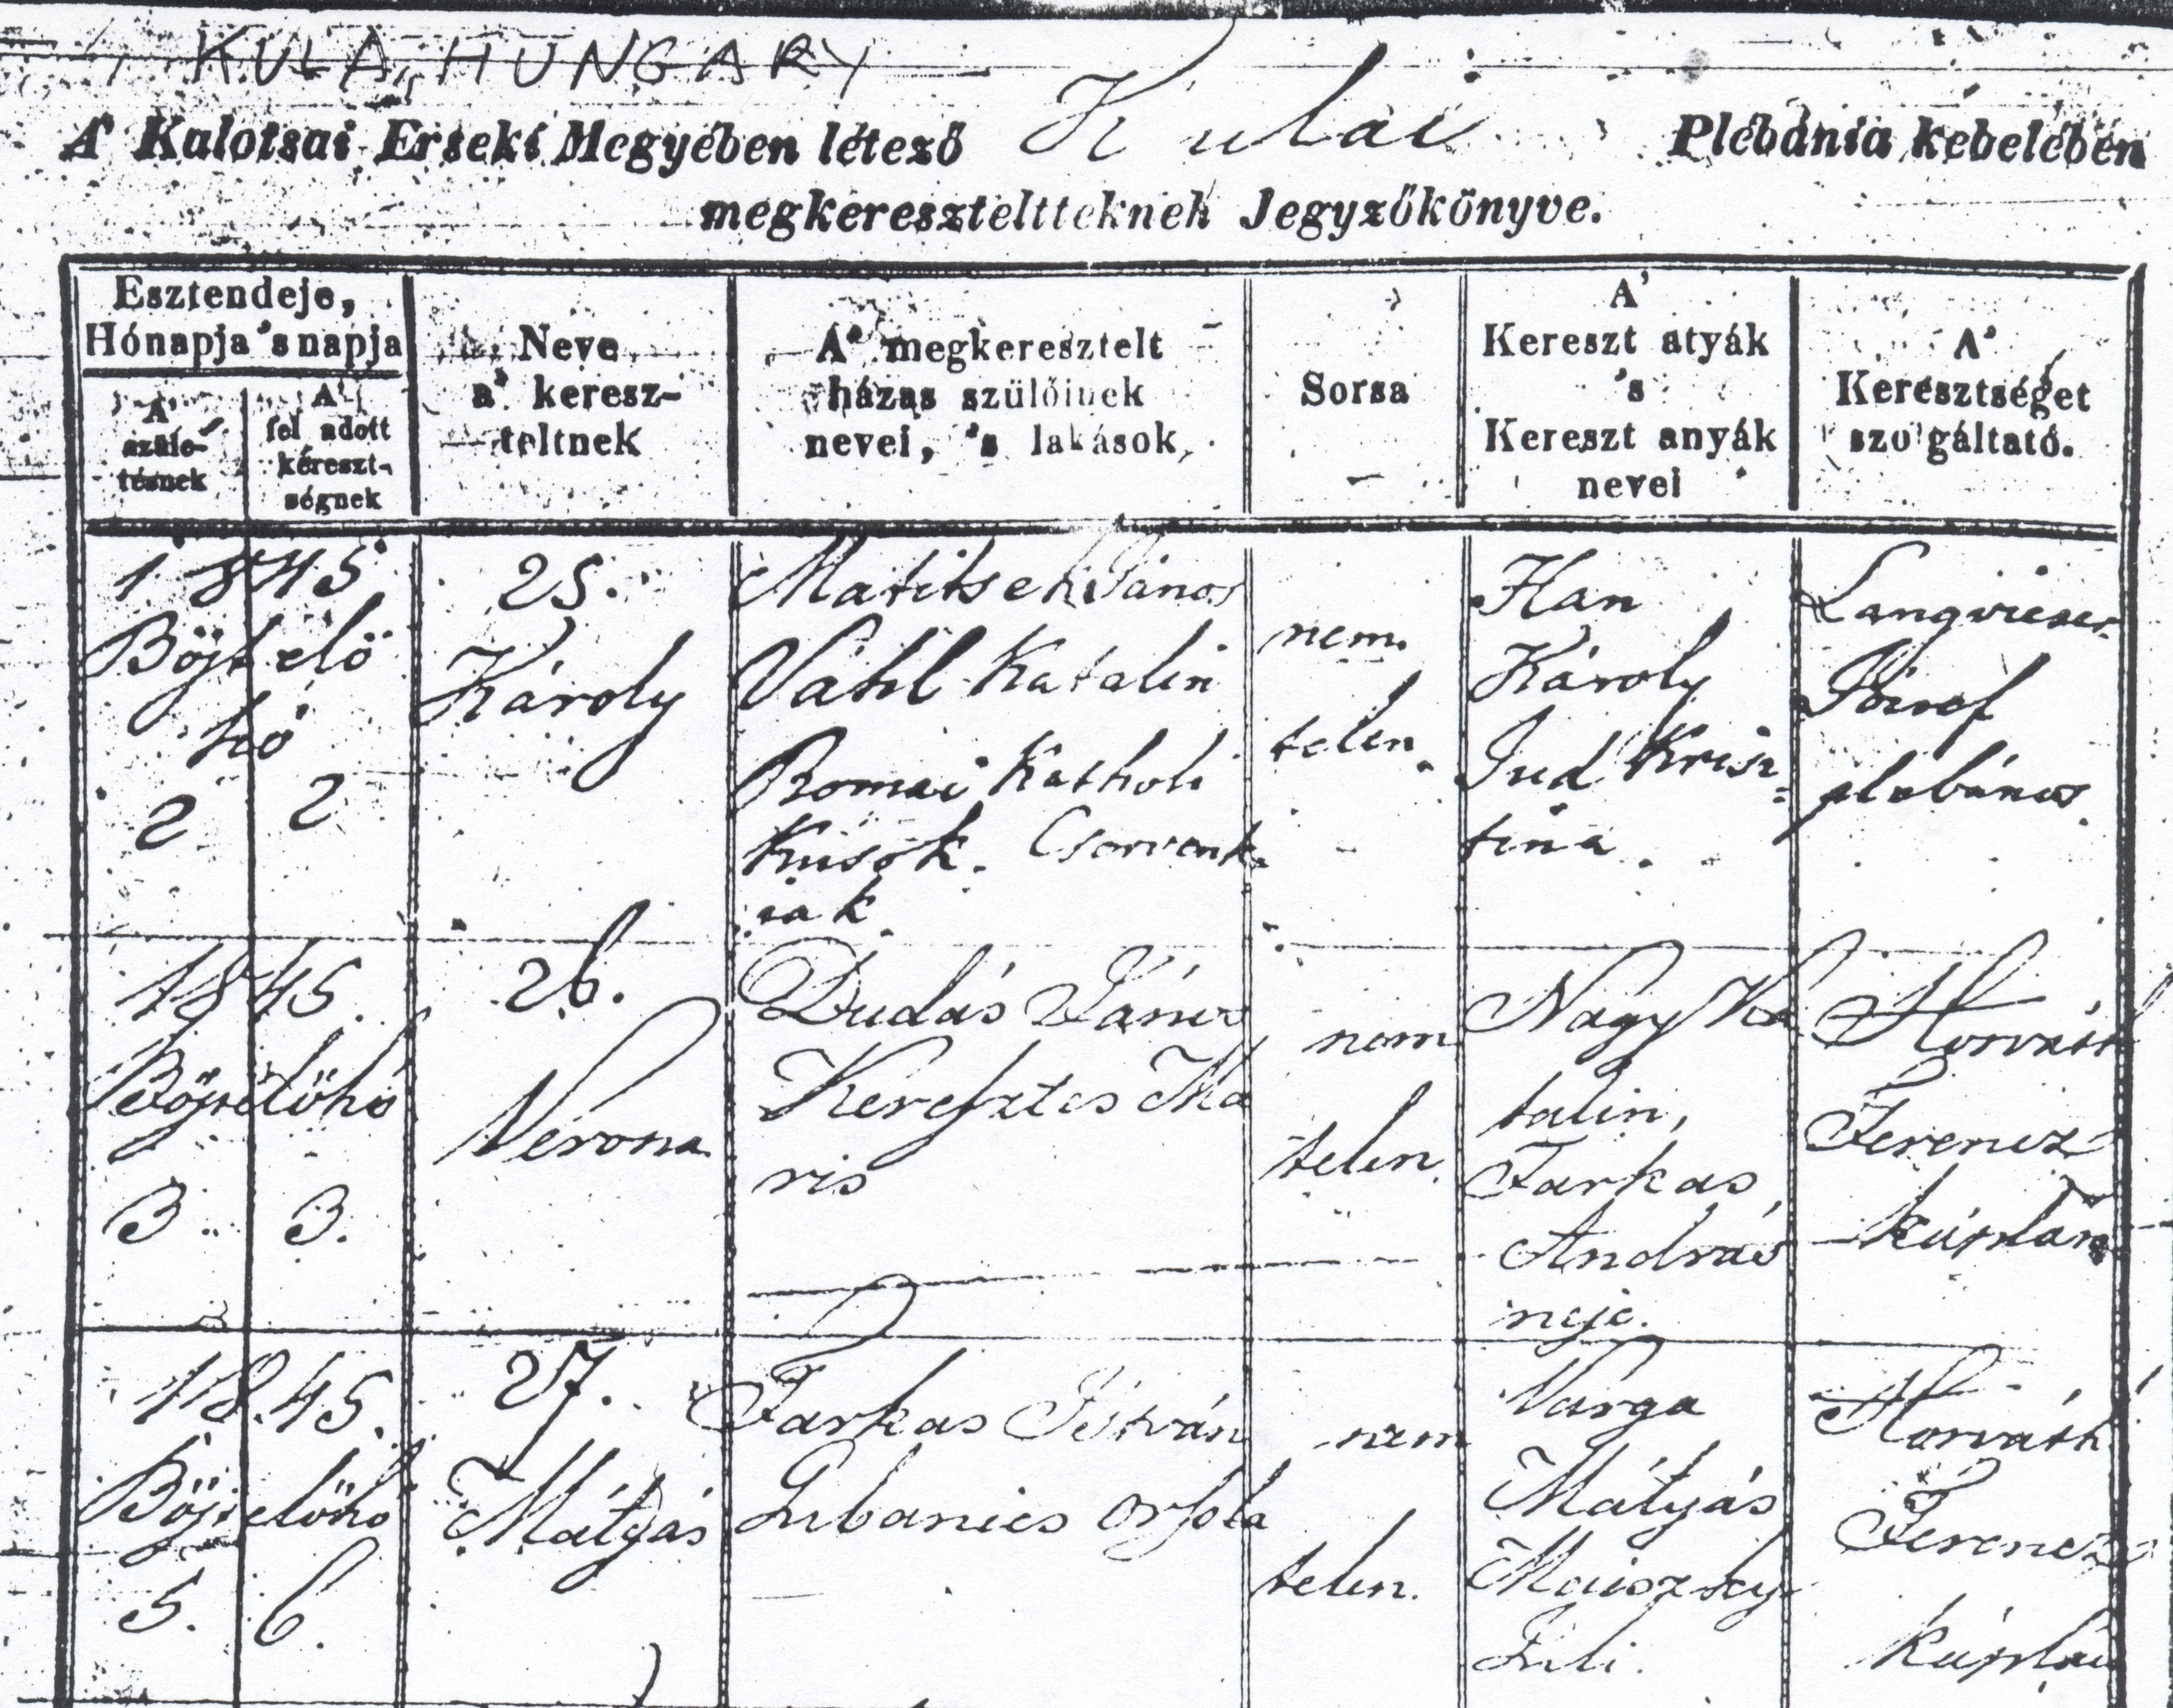 KULA, HUNGARY
A' Kalotsai Érseki Megyében létező Kulai Plébánia kebelében
megkereszteltteknek Jegyzőkönyve.
Esztendeje,
Hónapja 's napja
A'
szüle-
tésnek
A'
fel adott
kereszt-
ségnek
Neve
a' keresz-
teltnek
A' megkeresztelt
házas szülőinek
nevei, 's lakások
Sorsa
A'
Kereszt atyák
's
Kereszt anyák
nevei
A'
Keresztséget
szolgáltató.
1845
Böjt elő
hó
2 2
25.
Károly
Matitsek János
Vahl Katalin
Romai Katholi
kusok. Cservenk
iak
nem
telen.
Han
Károly
Jud Krisz=
tina.
József
plebános
1845
Böjtelőhó
3 3.
26.
Verona
Dudás János
Keresztes Ma
ris
nem
telen.
Nagy Ka
talin,
Farkas
András
neje.
Horváth
Ferencz
káplán
1845.
Böjtelőhó
5. 6.
27.
Mátyás
Farkas István
Lubanics Orsola
nem
telen.
Varga
Mátyás
Juli.
Horváth
Ferencz
káplán